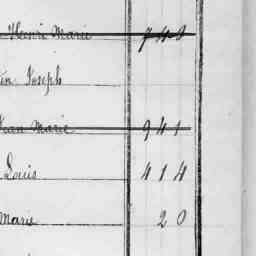 Henri Marie 740
Joseph
Jean Marie 941
Louis 414
Marie 20